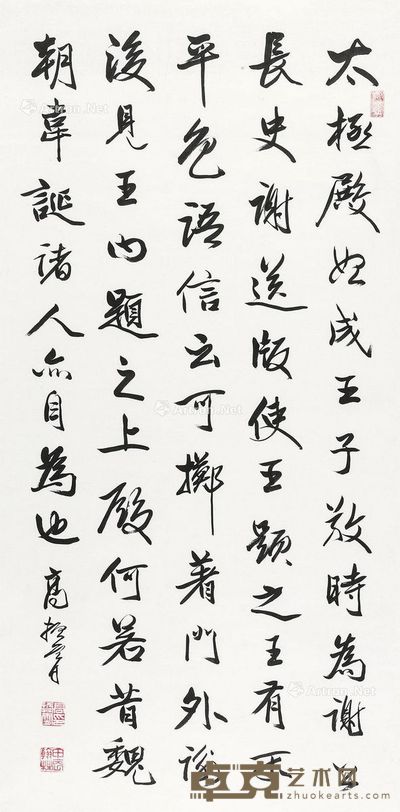 太極殿始成王子敬時為謝公
長史謝送版使王題之王有不
平色語信云可擲著門外謝
後見王曰題之上殿何若昔魏
朝韋誕諸人亦自為也 高振霄
Artron.Net
卓克艺术网
zhuokearts.com